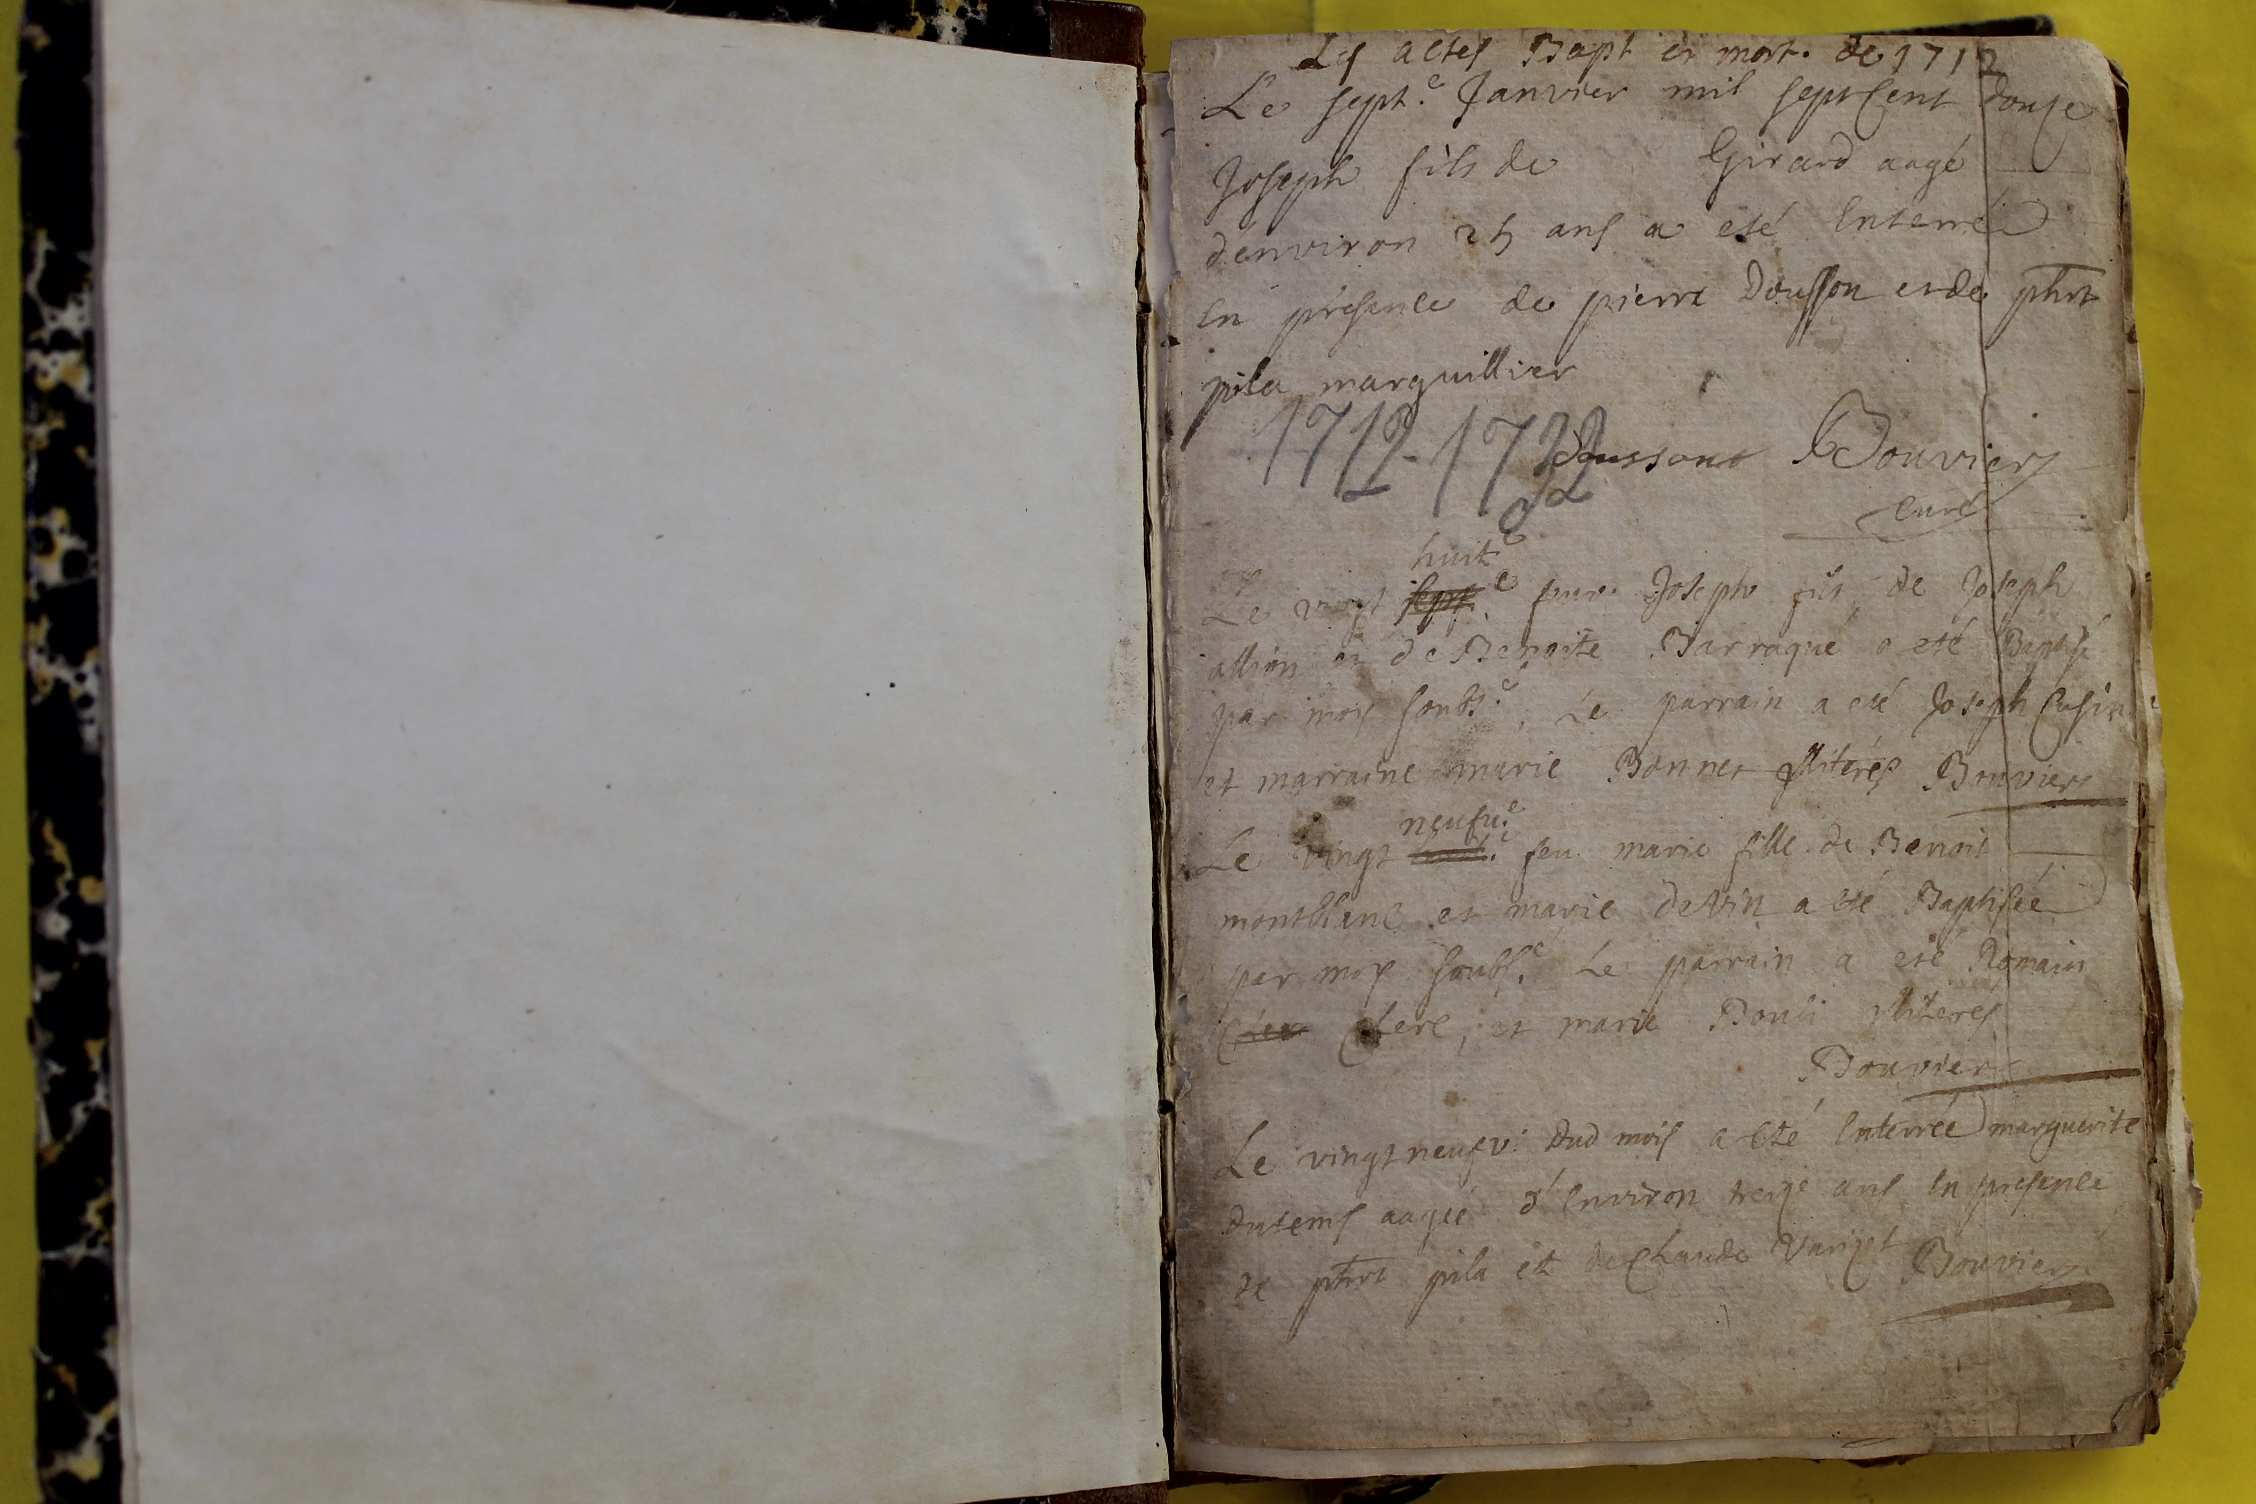 Les actes Bapt et mort. de 1712
Le sept.e Janvier mil sept cent douse
Joseph fils de Girard aagé
d'environ 25 ans a eté Enterré
En présence de pierre Dousson et de phrt
pila marguillier
1712-1732
Doussont Bouvier
curé
huit.e
Le vingt sept.e janv. Joseph fils de Joseph
allion et de Benoite Barraque a eté Baptisé
par moy soubs.é Le parrain a eté Joseph Cusin
et marraine marie Bonnet illiterés Bouvier
neufv.e
Le vingt feu marie fille de Benoit
montblanc et marie devin a eté Baptisée
par moy soubs.é Le parrain a eté Romain
Cler Clerc, et marie Bouli illiteres
Bouvier
Le vingt neufv. dud mois a eté Enterrée marguerite
dutems aagée d'Environ treize ans En presence
de phrt pila et de Claude Bouvier